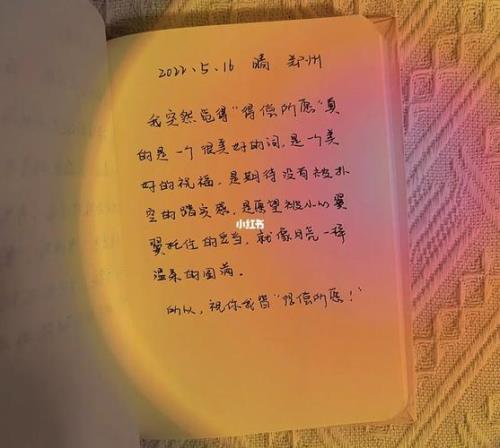 2022.5.16 晴 郑州
我突然觉得"得偿所愿"真
的是一个很美好的词,是一个美
好的祝福,是期待没有被扑
空的踏实感,是愿望被小心翼
翼托住的妥当,就像月亮一样
温柔的圆满。
小红书
所以,祝你我皆"得偿所愿!"